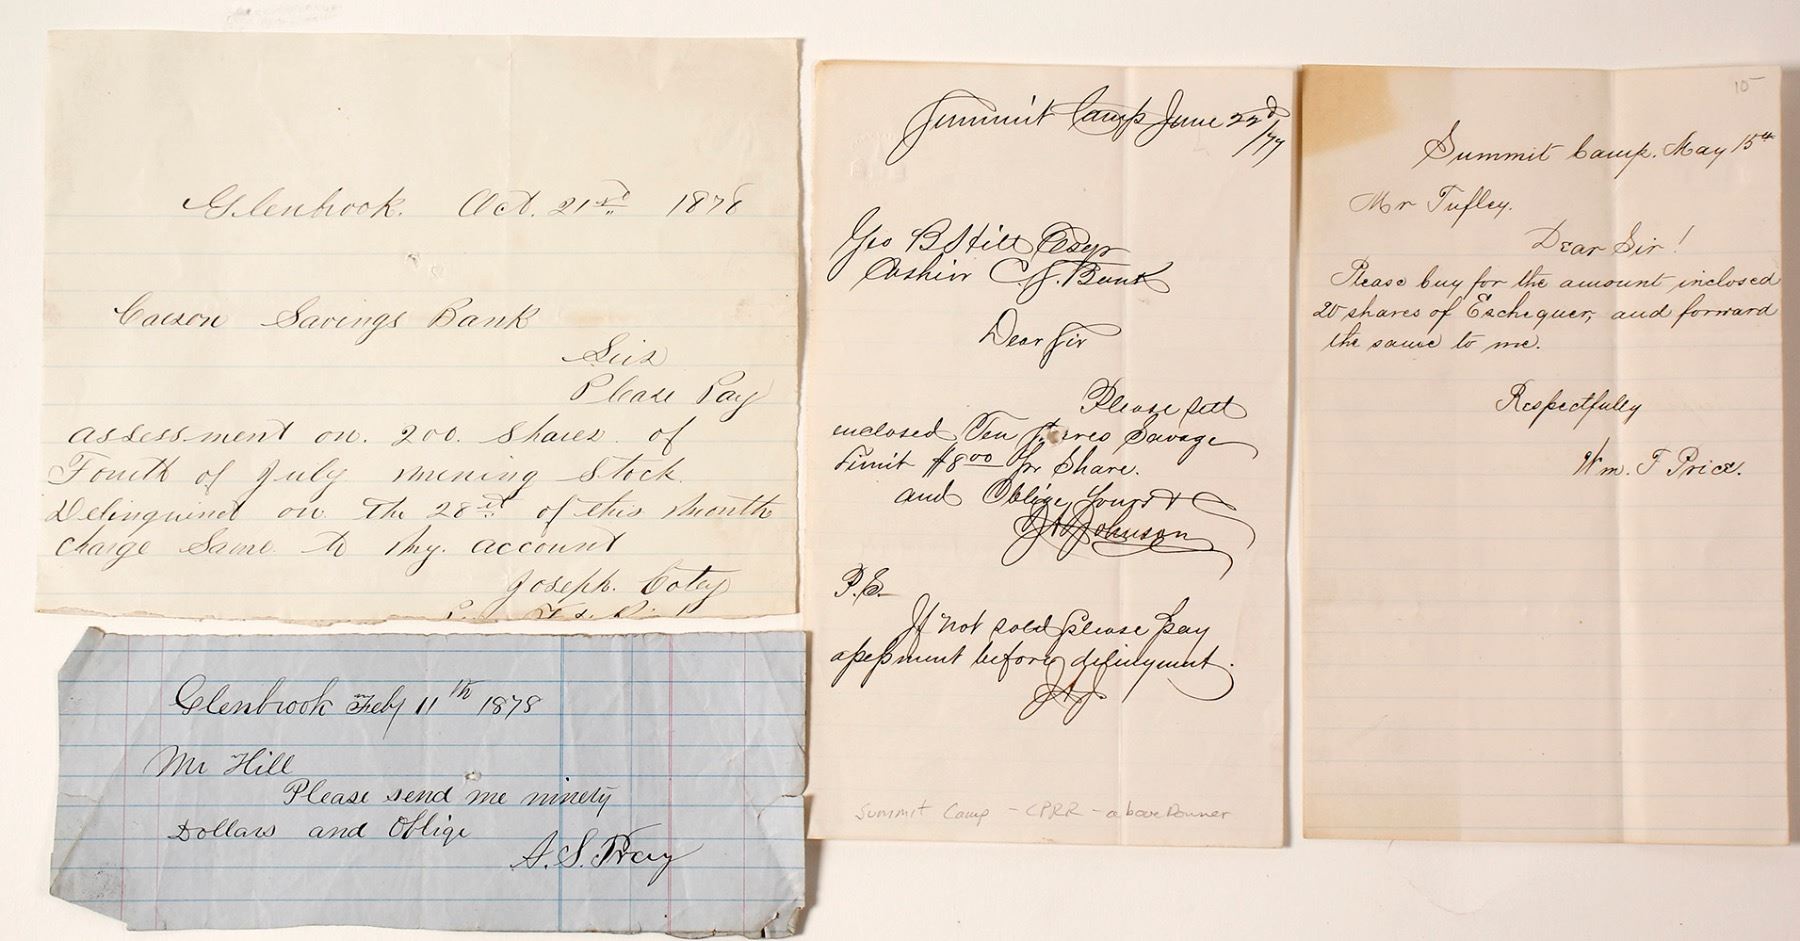 Glenbrook. Oct. 21st 1878
Carson Savings Bank
Sirs
Please Pay
assessment on. 200. Shares. of
Fourth of July Mining Stock.
Delinquent on The 28th of this Month
Charge Same to My. account
Joseph. Coley
Glenbrook Feby 11th 1878
Mr Hill
Please send me ninety
Dollars and Oblige
A. S. Pray
Summit Camp June 22d
/77
Geo B Hill Esqr
Cashier C. S. Bank
Dear Sir
Please sell
enclosed Ten Shares Savage
Limit $8 00 Pr Share.
and Oblige Yours &c
Johnson
P.S.
If not sold please pay
assessment before delinquent.
Summit Camp - CPRR - above Donner
15
Summit Camp. May 15th
Mr Tufley.
Dear Sir!
Please buy for the amount inclosed
20 shares of Exchequer, and forward
the same to me.
Respectfully
Wm. F Price.